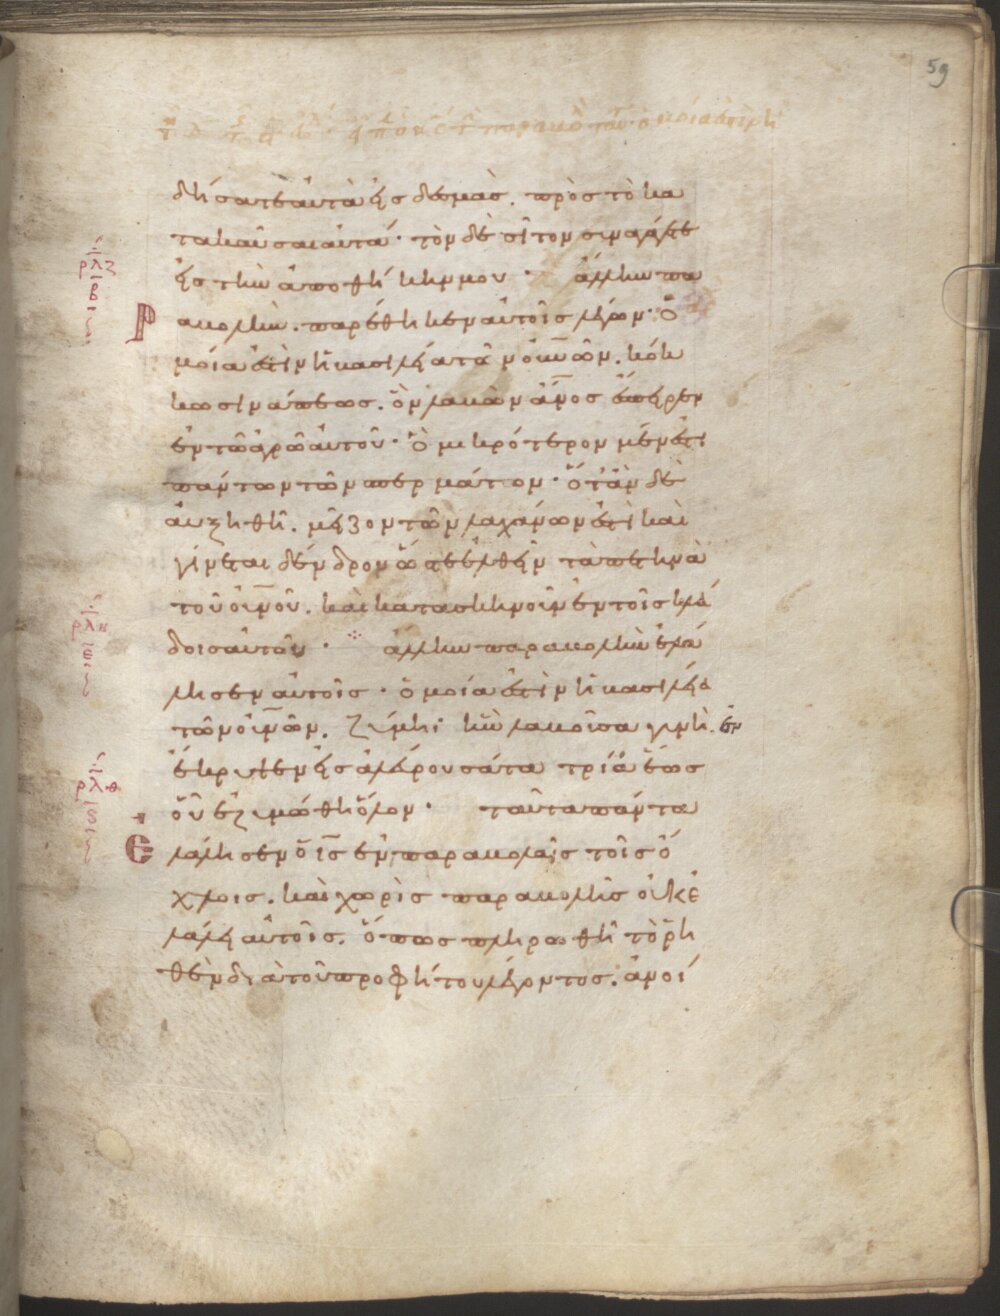 59
δήσατε αυτὰ εἰς δεσμὰς. πρὸς τὸ κα
τακαῦσαι αὐτά· τὸν δὲ σῖτον συναγάγετε
εἰς τὴν ἀποθήκην μου· ἄλλην πα
ραβολὴν. παρέθηκεν αὐτοῖς λέγων· Ὁ
ρλζ
β
μοία ἐστὶν ἡ βασιλεία τῶν οὐνῶν. κόκ
κω σινάπεως. ὃν λαβὼν ἄνος ἔσπειρεν
ἐν τῶ ἀγρῶ αὐτοῦ· Ὃ μικρότερον μέν ἐστι
πάντων τῶν σπερμάτων· ὅταν δὲ
αὐξηθῆ. μεῖζον τῶν λαχάνων ἐστὶ καὶ
γίνεται δένδρον ὥστε ἐλθεῖν τὰ πετεινὰ
τοῦ οὐνοῦ. καὶ κατασκηνοῦν ἐν τοῖς κλά
δοις αὐτοῦ· ἄλλην παραβολὴν ἐλά
ρλη
ε
λησεν αὐτοῖς· ὁμοία ἐστὶν ἡ βασιλεία
τῶν οὐνῶν. ζύμη· ἣν λαβοῦσα γυνὴ. ἐν
έκρυψεν εἰς ἀλεύρου σάτα τρία ἕως
οὗ ἐζυμώθη ὅλον· ταῦτα πάντα
ρλθ
ς
ἐλάλησεν ὁ ις ἐν παραβολαῖς τοῖς ὄ
χλοις. καὶ χωρὶς παραβολῆς οὐκ ἐ
λάλει αὐτοῖς. ὅπως πληρωθῆ τὸ ῥη
θὲν διὰ τοῦ προφήτου λέγοντος. ἀνοί